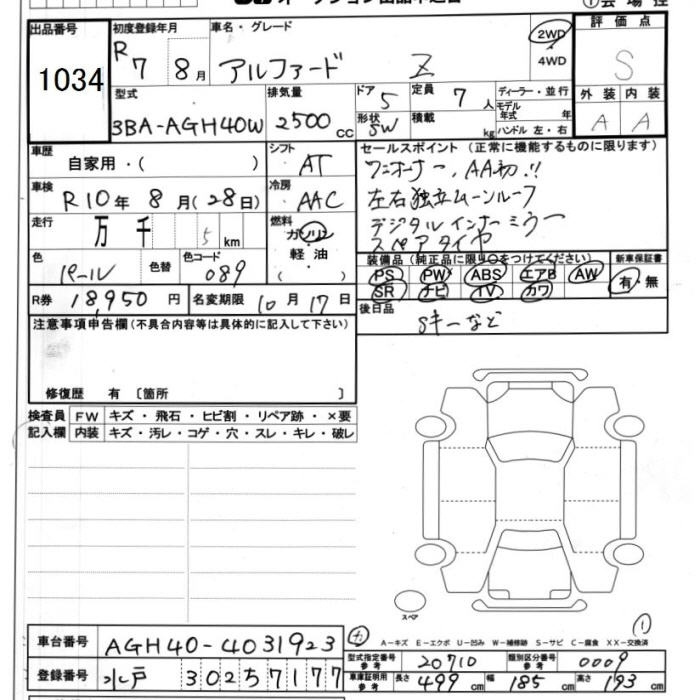 出品番号 初度登録年月 車名・グレード 評価点
1034 R7 8月 アルファード Z 2WD 4WD S
型式 排気量 ドア 定員 ディーラー・並行 外装 内装
3BA-AGH40W 2500 cc 5 7人 モデル年式 年 A A
形状 SW 積載 kg ハンドル 左・右
車歴 シフト セールスポイント (正常に機能するものに限ります)
自家用・( ) AT ワンオーナー、AA初!!
車検 冷房 左右独立ムーンルーフ
R10年8月(28日) AAC デジタルインナーミラー
走行 燃料 スペアタイヤ
万 千 5 km ガソリン
軽油
( )
色 色替 色コード 装備品(純正品に限り○をつけてください) 新車保証書
パール 089 PS PW ABS エアB AW 有・無
SR ナビ TV カワ
R券 18,950円 名変期限 10月17日 後日品
Sキーなど
注意事項申告欄(不具合内容等は具体的に記入して下さい)
修復歴 有 〔箇所 〕
検査員 FW キズ・飛石・ヒビ割・リペア跡・×要
記入欄 内装 キズ・汚レ・コゲ・穴・スレ・キレ・破レ
スペア
A−キズ E−エクボ U−凹み W−補修跡 S−サビ C−腐食 XX−交換済
車台番号 AGH40-4031923
型式指定番号 参考 20710 類別区分番号 参考 0009
登録番号 水戸 302 ち 7177
車庫証明用 参考 長さ 499cm 幅 185cm 高さ 193cm